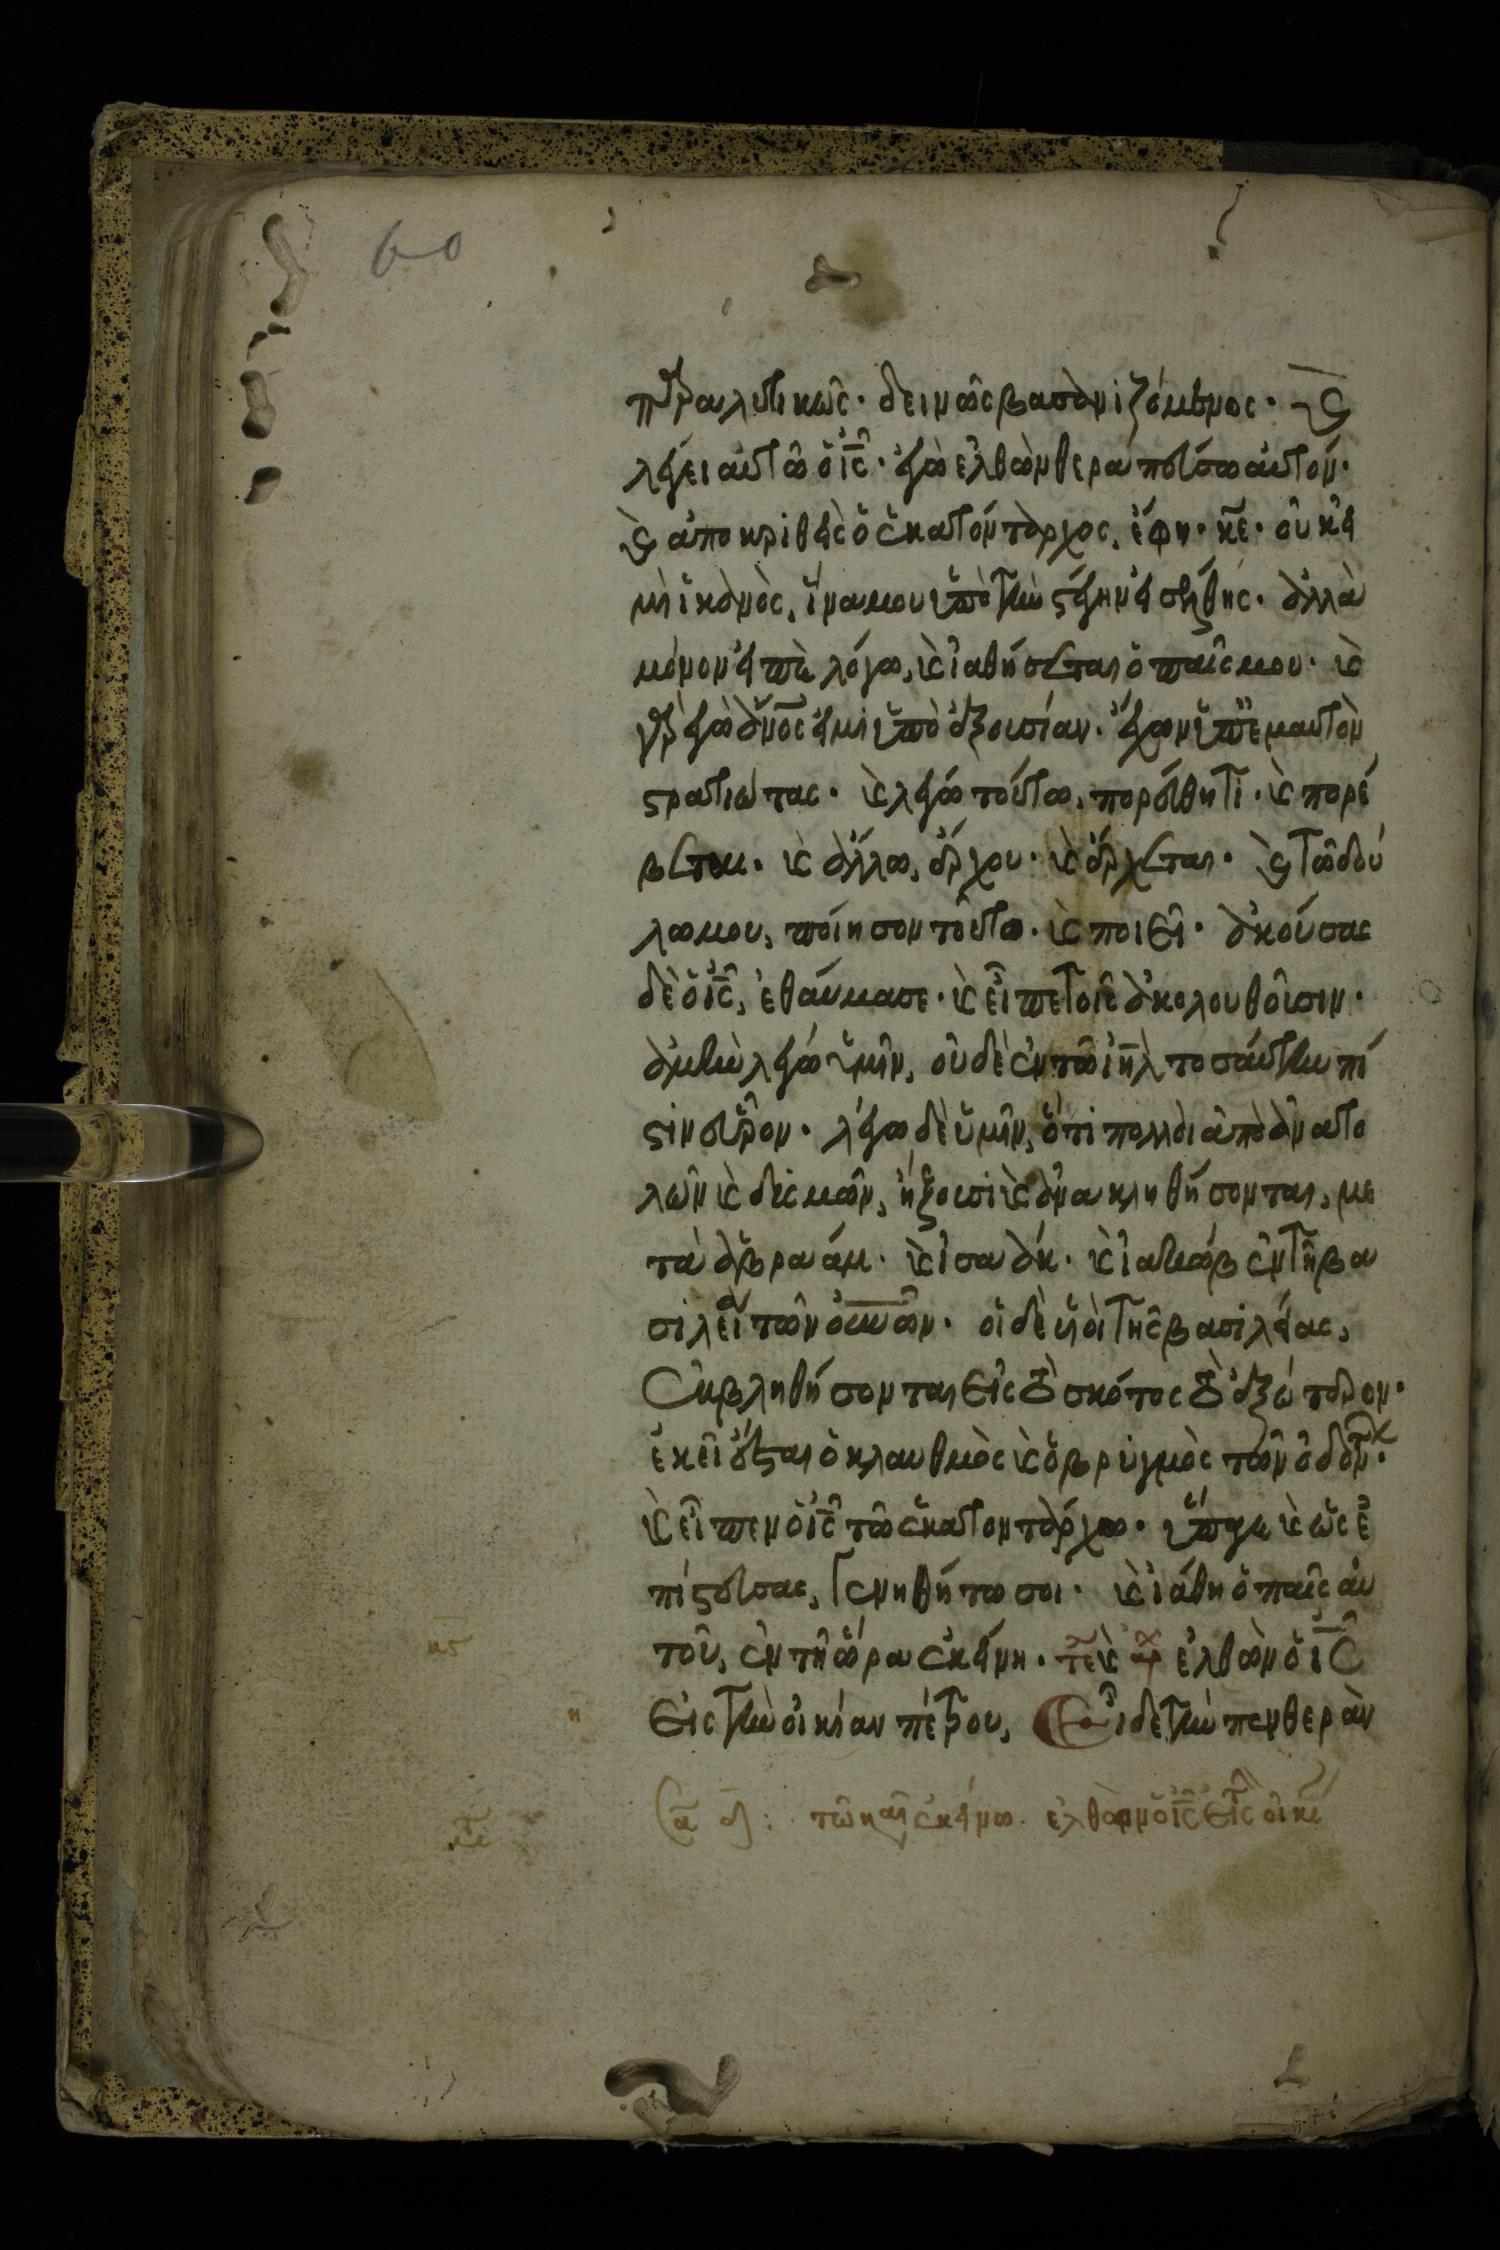 60
παραλυτικῶς· δεινῶς βασανιζόμενος· καὶ
λέγει αὐτῶ ὁ ἰ̅ς̅· ἐγὼ ἐλθὼν θεραπεύσω αὐτόν·
καὶ ἀποκριθεὶς ὁ ἑκατόνταρχος, ἔφη· κ̅ε̅· οὐκ εἰ
μὶ ἱκανὸς, ἵνα μου ὑπὸ τὴν στέγην εἰσέλθης· ἀλλὰ
μόνον εἰπὲ λόγω, καὶ ἰαθήσεται ὁ παῖς μου· καὶ
γὰρ ἐγὼ ἄν̅ο̅ς εἰμὶ ὑπὸ ἐξουσίαν· ἔχων ὑπ' ἐμαυτὸν
στρατιώτας· καὶ λέγω τούτω, πορεύθητι· καὶ πορεύ
εται· καὶ ἄλλω, ἔρχου· καὶ ἔρχεται· καὶ τῶ δού
λω μου, ποίησον τοῦτο· καὶ ποιεῖ· ἀκούσας
δὲ ὁ ἰ̅ς̅, ἐθαύμασε· καὶ εἶπε τοῖς ἀκολουθοῦσιν·
ἀμὴν λέγω ὑμῖν, οὐδὲ ἐν τῶ ἰ̅η̅λ̅ τοσαύτην πί
στιν εὗρον· λέγω δὲ ὑμῖν, ὅτι πολλοὶ ἀπὸ ἀνατο
λῶν καὶ δυσμῶν, ἥξουσι καὶ ἀνακληθήσονται, με
τὰ ἀβραάμ· καὶ ἰσαάκ· καὶ ἰακώβ ἐν τῆ βα
σιλεία τῶν ο̅υ̅ν̅ῶν· οἱ δὲ υἱοὶ τῆς βασιλείας,
ἐκβληθήσονται εἰς τὸ σκότος τὸ ἐξώτερον·
ἐκεῖ ἔσται ὁ κλαυθμὸς καὶ ὁ βρυγμὸς τῶν ὀδόντ·
καὶ εἶπεν ὁ ἰ̅ς̅ τῶ ἑκατοντάρχω· ὕπαγε καὶ ὡς ἐ
πίστευσας, γενηθήτω σοι· καὶ ἰάθη ὁ παῖς αὐ
τοῦ, ἐν τῆ ὥρα ἐκείνη· τε καὶ αρ ἐλθὼν ὁ ἰ̅ς̅
εἰς τὴν οἰκίαν πέτρου, εἶδε τὴν πενθερὰν
κ̅ς̅
η
τῶ καιρῶ ἐκείνω· ἐλθὼν ὁ ἰ̅ς̅ εἰς τ οἰκί